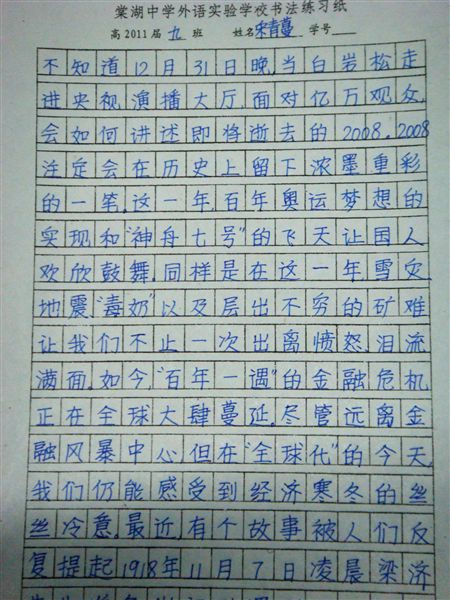 棠湖中学外语实验学校书法练习纸
高2011届 九 班 姓名 宋青蔓 学号
不知道12月31日晚,当白岩松走
进央视演播大厅,面对亿万观众,
会如何讲述即将逝去的2008.2008
注定会在历史上留下浓墨重彩
的一笔.这一年,百年奥运梦想的
实现和"神舟七号"的飞天让国人
欢欣鼓舞.同样是在这一年,雪灾
地震"毒奶"以及层出不穷的矿难
让我们不止一次出离愤怒,泪流
满面.如今,"百年一遇"的金融危机
正在全球大肆蔓延.尽管远离金
融风暴中心但在"全球化"的今天,
我们仍能感受到经济寒冬的丝
丝冷意.最近,有个故事被人们反
复提起1918年11月7日凌晨梁济